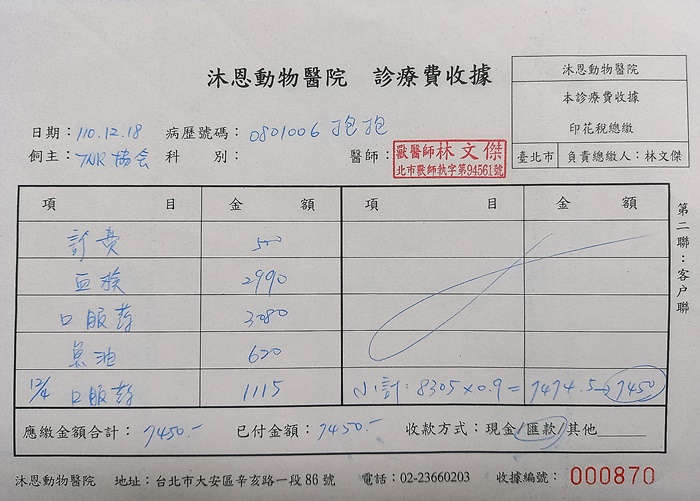 沐恩動物醫院 診療費收據
沐恩動物醫院
本診療費收據
印花稅總繳
臺北市 負責總繳人:林文傑
日期:110.12.18 病歷號碼:0801006 抱抱
飼主:TNR協会 科 別: 醫師:
獸醫師林文傑
北市獸師執字第94561號
項 目 金 額 項 目 金 額
診費 500
血檢 2990
口服葯 3080
魚油 620
12/4 口服葯 1115 小計:8305×0.9=7474.5→7450
應繳金額合計:7450.- 已付金額:7450.- 收款方式:現金/匯款/其他
第二聯:客戶聯
沐恩動物醫院 地址:台北市大安區辛亥路一段86號 電話:02-23660203 收據編號:000870